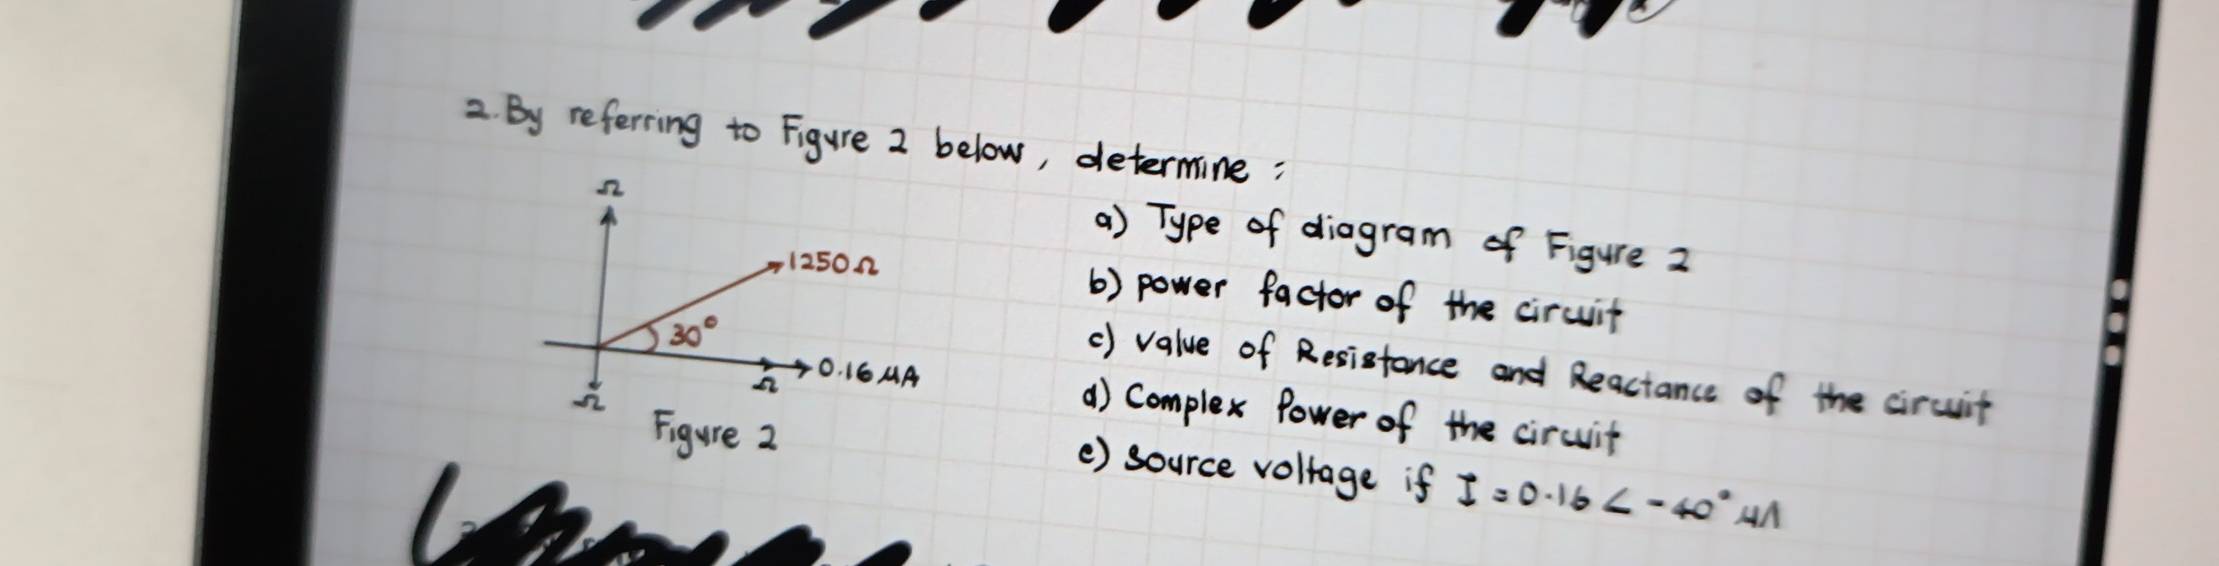 2. By referring to Figure 2 below, determine :
Ω
1250Ω
30°
0.16 µA
Ω
Ω
Figure 2
a) Type of diagram of Figure 2
b) power factor of the circuit
c) value of Resistance and Reactance of the circuit
d) Complex Power of the circuit
e) source voltage if I = 0.16 ∠ -40° µA